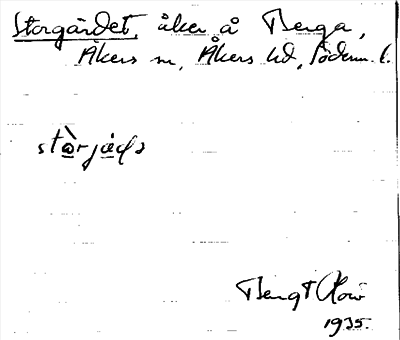 Storgärdet, åker å Berga,
Åkers sn, Åkers hd, Söderm. l.
stò̱rjä̱ḍə
Bengt
1935.